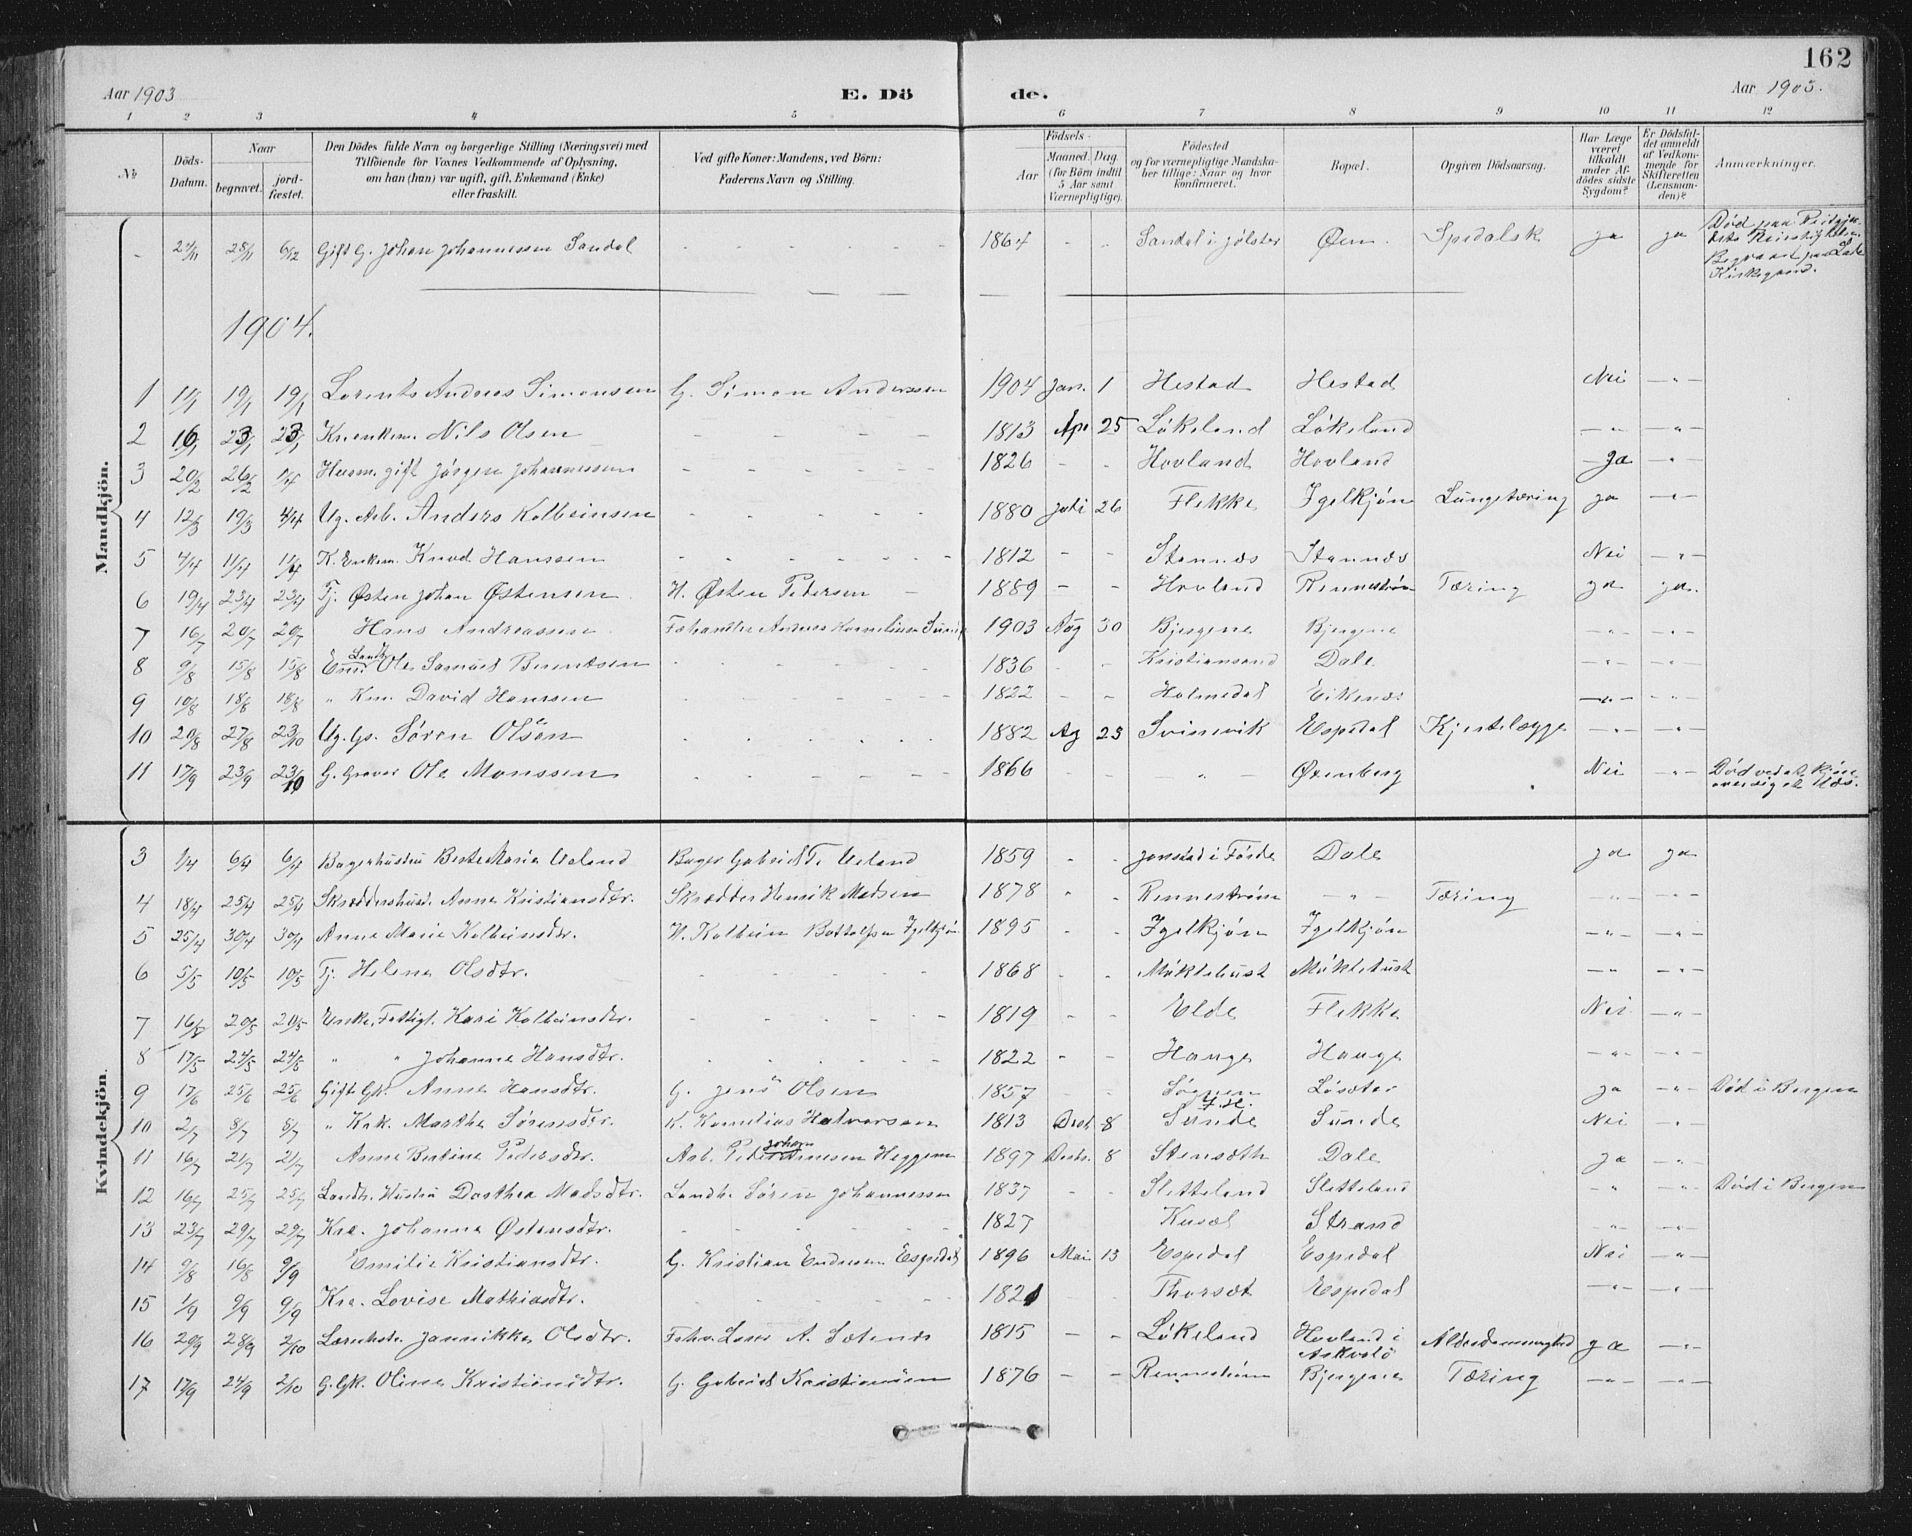 162
Aar 1903 E. Dö de. Aar 1903.
1 2 3 4 5 6 7 8 9 10 11 12
№ Döds-Datum. Naar begravet. jord-fæstet. Den Dödes fulde Navn og borgerlige Stilling (Næringsvei) med Tilföiende for Voxnes Vedkommende af Oplysning, om han (hun) var ugift, gift, Enkemand (Enke) eller fraskilt. Ved gifte Koner: Mandens, ved Börn: Faderens Navn og Stilling. Födsels- Aar Maaned. Dag. (for Börn indtil 5 Aar samt Værnepligtige). Födested og for værnepligtige Mandska-ber tillige: Naar og hvor konfirmeret. Bopæl. Opgiven Dödsaarsag. Har Læge været tilkaldt under Af-dödes sidste Sygdom? Er Dödsfal-det anmeldt af Vedkom-mende for Skifteretten (Lensman-den)? Anmærkninger.
Mandkjön.
- 24/11 28/11 6/12 Gift G. Johan Johannessen Sandal - - - 1864 - - Sandal i Jølster Øen Spedalsk ja ja Død paa Reitgjerdets Pleiestiftelse. Begravet paa Lade Kirkegaard.
1904.
1 11/1 19/1 19/1 Lorents Andreas Simonsen G. Simon Anderssen 1904 Jan. 1 Hestad Hestad Nei - " -
2 16/1 23/1 23/1 Kr. enkem. Nils Olsen - - - 1813 Apr 25 Løkeland Løkeland - " - - " -
3 20/2 26/2 1/4 Husm. gift Jørgen Johannessen - - - 1826 - - Hovland Hovland - ja - " -
4 12/3 19/3 4/4 Ug. Arb. Anders Kolbeinsen - - - 1880 Juli 26 Flekke Igelkjøn Lungetæring ja - " -
5 4/4 11/4 11/4 K. Enkem. Knud Hanssen - - - 1812 - - Stennæs Stennæs Nei - " -
6 19/4 23/4 23/4 Tj. Østen Johan Østensen H. Østen Pedersen - 1889 - - Hovland Rennestrøm Tæring ja ja.
7 16/7 20/7 20/7 Hans Andreassen Fhandler Andreas Kornelius Sunde 1903 Aug 30 Bjergene Bjergene - " - - " -
8 9/8 15/8 15/8 Em. Landh. Ole Samuel Berentsen - - - 1836 - - Kristiansand Dale - " - - " -
9 10/8 18/8 18/8 " Km. David Hanssen - - - 1822 - - Holmedal Eikenæs - " - - " -
10 20/8 27/8 23/10 Ug. Gs. Søren Olsen - - - 1882 Ag 25 Svinevik Espedal Kjertelsyge - " - - " -
11 17/9 23/9 23/10 G. Graver Ole Monssen - - - 1866 - " - Ørenberg Nei - " -
Kvindekjön.
3 1/4 6/4 6/4 Bagerhustru Berte Marie Ueland Bager Gabriel T. Ueland 1859 - - Jonstad i Førde Dale ja ja
4 18/4 25/4 25/4 Skrædderhust. Anne Kristiansdtr. Skrædder Henrik Madsen 1878 " - Rennestrøm - " - Tæring - " - - " -
5 25/4 30/4 30/4 Anne Marie Kolbeinsdtr. H. Kolbein Bottolfsen Igelkjøn 1895 - - Igelkjøn Igelkjøn - " - - " -
6 5/5 10/5 10/5 Tj. Helene Olsdtr. - - - 1868 - - Møklebust Møklebust - " - - " -
7 16/5 20/5 20/5 Enke, Fattigl. Kari Kolbeinsdtr. - - - 1819 - - Elde Flekke Nei - " -
8 17/5 24/5 24/5 " " Johanne Hansdtr. - - - 1822 - - Hauge Hauge - " - - " -
9 17/6 25/6 25/6 Gift Gk. Anne Hansdtr. G. Jens Olsen 1857 - - Løsæter ja - " - Død i Bergen
10 2/7 8/7 8/7 " Kak. Marthe Sørensdtr. K. Kornelius Halvorssen 1813 8 Sunde Sunde Nei - " -
11 16/7 21/7 21/7 Anne Bertine Pedersdtr. Arb. Peder Johan Heggem 1897 Decbr. 8 Stensæth Dale ja - " -
12 16/7 25/7 25/7 Landh. Hustru Dorthea Madsdtr. Landh. Søren Johannessen 1837 - - Sletteland Sletteland " - " - Død i Bergen
13 23/7 29/7 29/7 Kre. Johanne Østensdtr. - - - 1827 Kusæt Strand - " - - " -
14 9/8 16/8 9/9 Emilie Kristiansdtr. G. Kristian Endresen Espedal 1896 Mai 13 Espedal Espedal Nei - " -
15 1/9 9/9 9/9 Kre. Lovise Mathiasdtr. - - - 1821 - - Thorsæt Espedal - " - - " -
16 20/9 28/9 2/10 Jannikke Olsdtr. A. Sætenes 1815 - - Løkeland Hovland i Askvold Alderdomssvaghed ja - " -
17 17/9 24/9 2/10 G. Gk. Oline Kristiansdtr. G. Gabriel Kristiansen 1876 - - Rennestrøm Bjergene Tæring - " - - " -